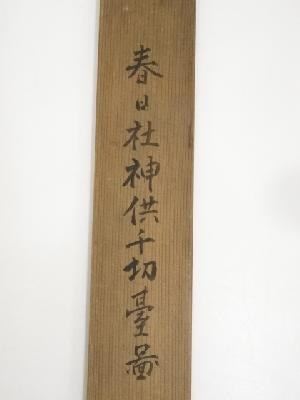 春日社神供千切臺圖